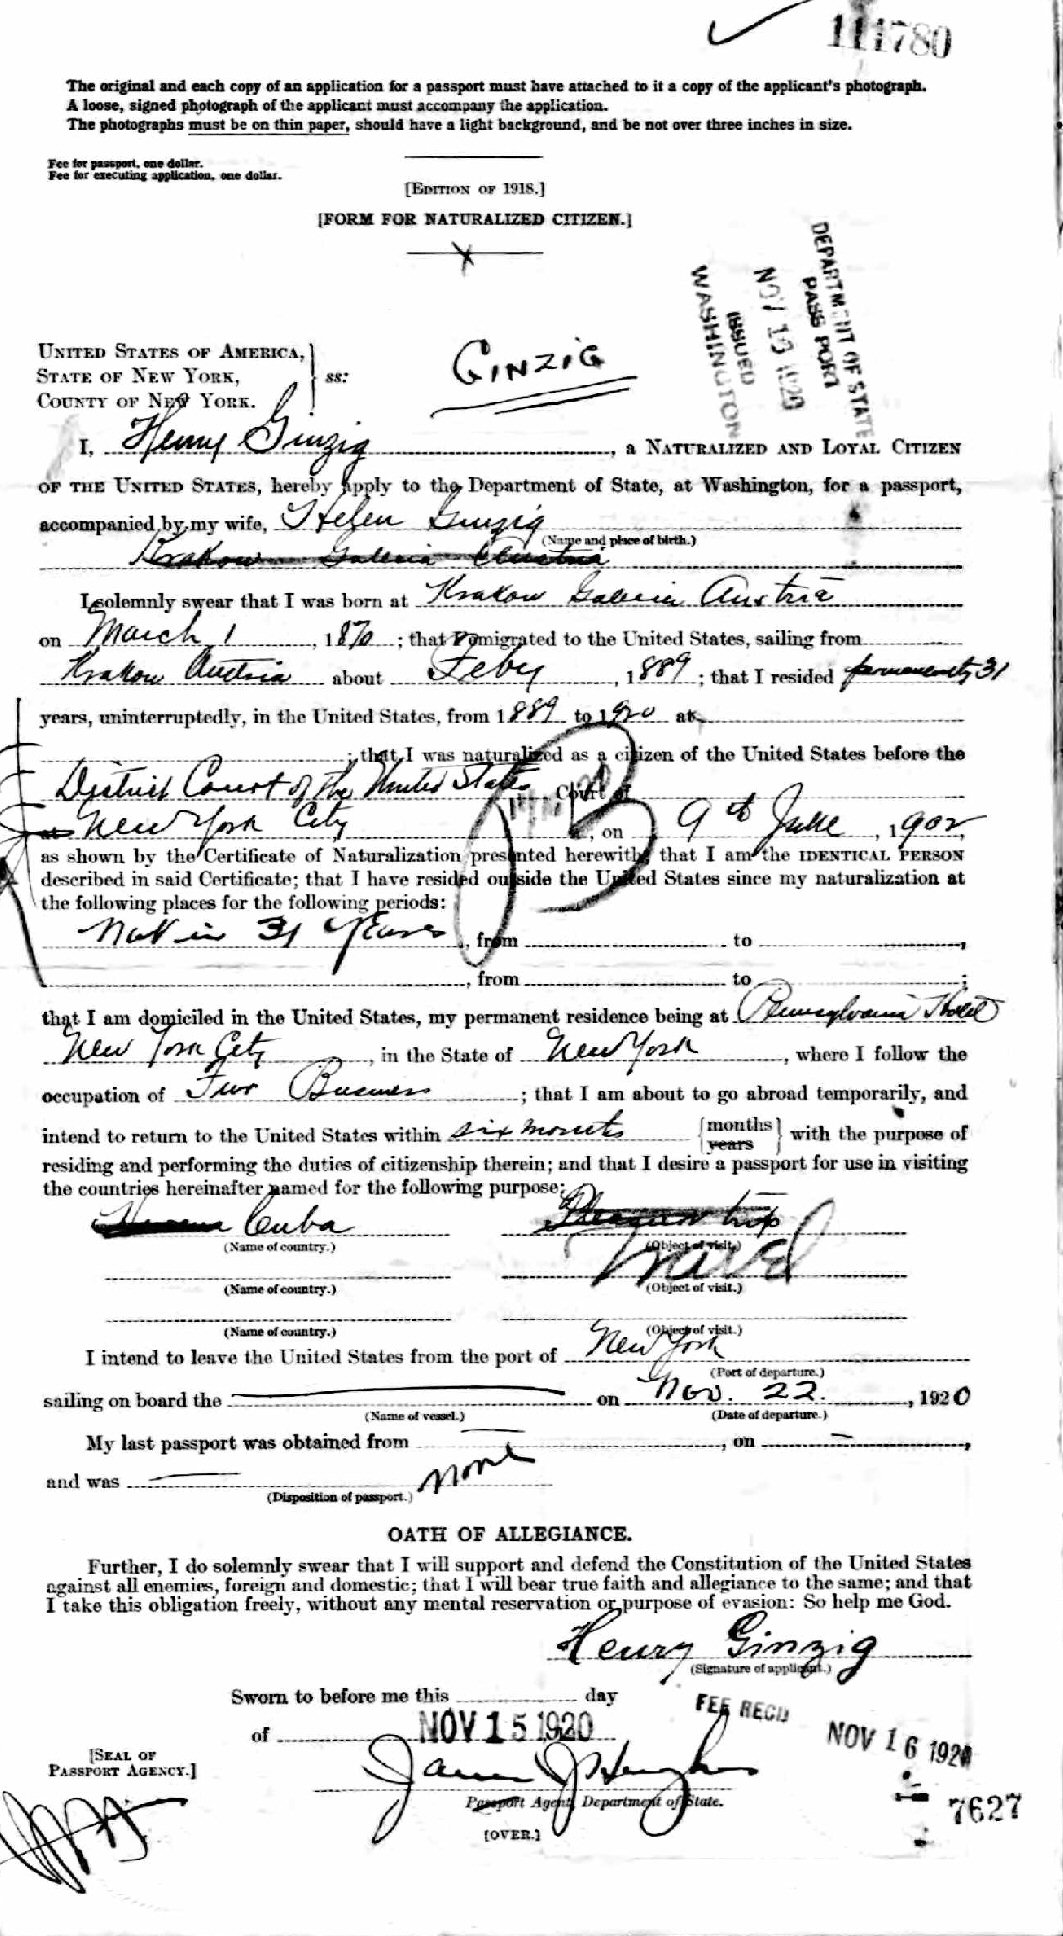 111780
The original and each copy of an application for a passport must have attached to it a copy of the applicant's photograph.
A loose, signed photograph of the applicant must accompany the application.
The photographs must be on thin paper, should have a light background, and be not over three inches in size.
Fee for passport, one dollar.
Fee for executing application, one dollar.
[EDITION OF 1918.]
[FORM FOR NATURALIZED CITIZEN.]
DEPARTMENT OF STATE
PASSPORT
NOV 1920
ISSUED
WASHINGTON
UNITED STATES OF AMERICA,
STATE OF NEW YORK,
COUNTY OF NEW YORK.
ss:
GINZIG
I, Henry Ginzig, a NATURALIZED AND LOYAL CITIZEN
OF THE UNITED STATES, hereby apply to the Department of State, at Washington, for a passport,
accompanied by my wife, Helen Ginzig
(Name and place of birth.)
Krakow Galicia Austria
I solemnly swear that I was born at Krakow Galicia Austria
on March 1, 1870; that I emigrated to the United States, sailing from
Krakow Austria about Feby, 1889; that I resided permanently 31
years, uninterruptedly, in the United States, from 1889 to 1920 at
; that I was naturalized as a citizen of the United States before the
District Court of the United States Court of
at New York City, on 9th June, 1902,
as shown by the Certificate of Naturalization presented herewith; that I am the IDENTICAL PERSON
described in said Certificate; that I have resided outside the United States since my naturalization at
the following places for the following periods:
Not in 31 Years, from to ,
, from to ;
that I am domiciled in the United States, my permanent residence being at Pennsylvania Hotel
New York City, in the State of New York, where I follow the
occupation of Fur Business; that I am about to go abroad temporarily, and
intend to return to the United States within six months {months years} with the purpose of
residing and performing the duties of citizenship therein; and that I desire a passport for use in visiting
the countries hereinafter named for the following purpose:
Cuba Pleasure trip
(Name of country.) (Object of visit.)
Travel
(Name of country.) (Object of visit.)
(Name of country.) (Object of visit.)
I intend to leave the United States from the port of New York
(Port of departure.)
sailing on board the on Nov. 22, 1920
(Name of vessel.) (Date of departure.)
My last passport was obtained from , on ,
and was none
(Disposition of passport.)
OATH OF ALLEGIANCE.
Further, I do solemnly swear that I will support and defend the Constitution of the United States
against all enemies, foreign and domestic; that I will bear true faith and allegiance to the same; and that
I take this obligation freely, without any mental reservation or purpose of evasion: So help me God.
Henry Ginzig
(Signature of applicant.)
Sworn to before me this day
of NOV 15 1920
FEE RECD
NOV 16 1920
[SEAL OF
PASSPORT AGENCY.]
James J Hughes
Passport Agent, Department of State.
7627
[OVER.]